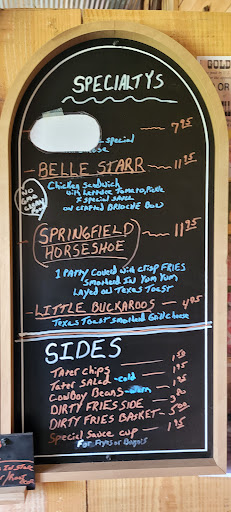 SPECIALTYS
special 7.95
BELLE STARR — 11.95
Chicken Sandwich
with Lettuce Tomato, Pickle
& special sauce
on Grilled Brioche Bun
NO
SPRINGFIELD HORSESHOE — 11.95
1 Patty Covered with crisp FRIES
Smothered IN Yum Yum
Layed on Texas Toast
LITTLE BUCKAROOS — 4.95
Texas Toast Smothered Grill cheese
SIDES
Tater chips — 1.50
Tater SALAD - cold 1.95
CowBoy Beans - warm 1.95
DIRTY FRIES SIDE —
DIRTY FRIES BASKET — 5.00
Special Sauce cup — 1.95
For Frys or Dogos
GOLD
OR